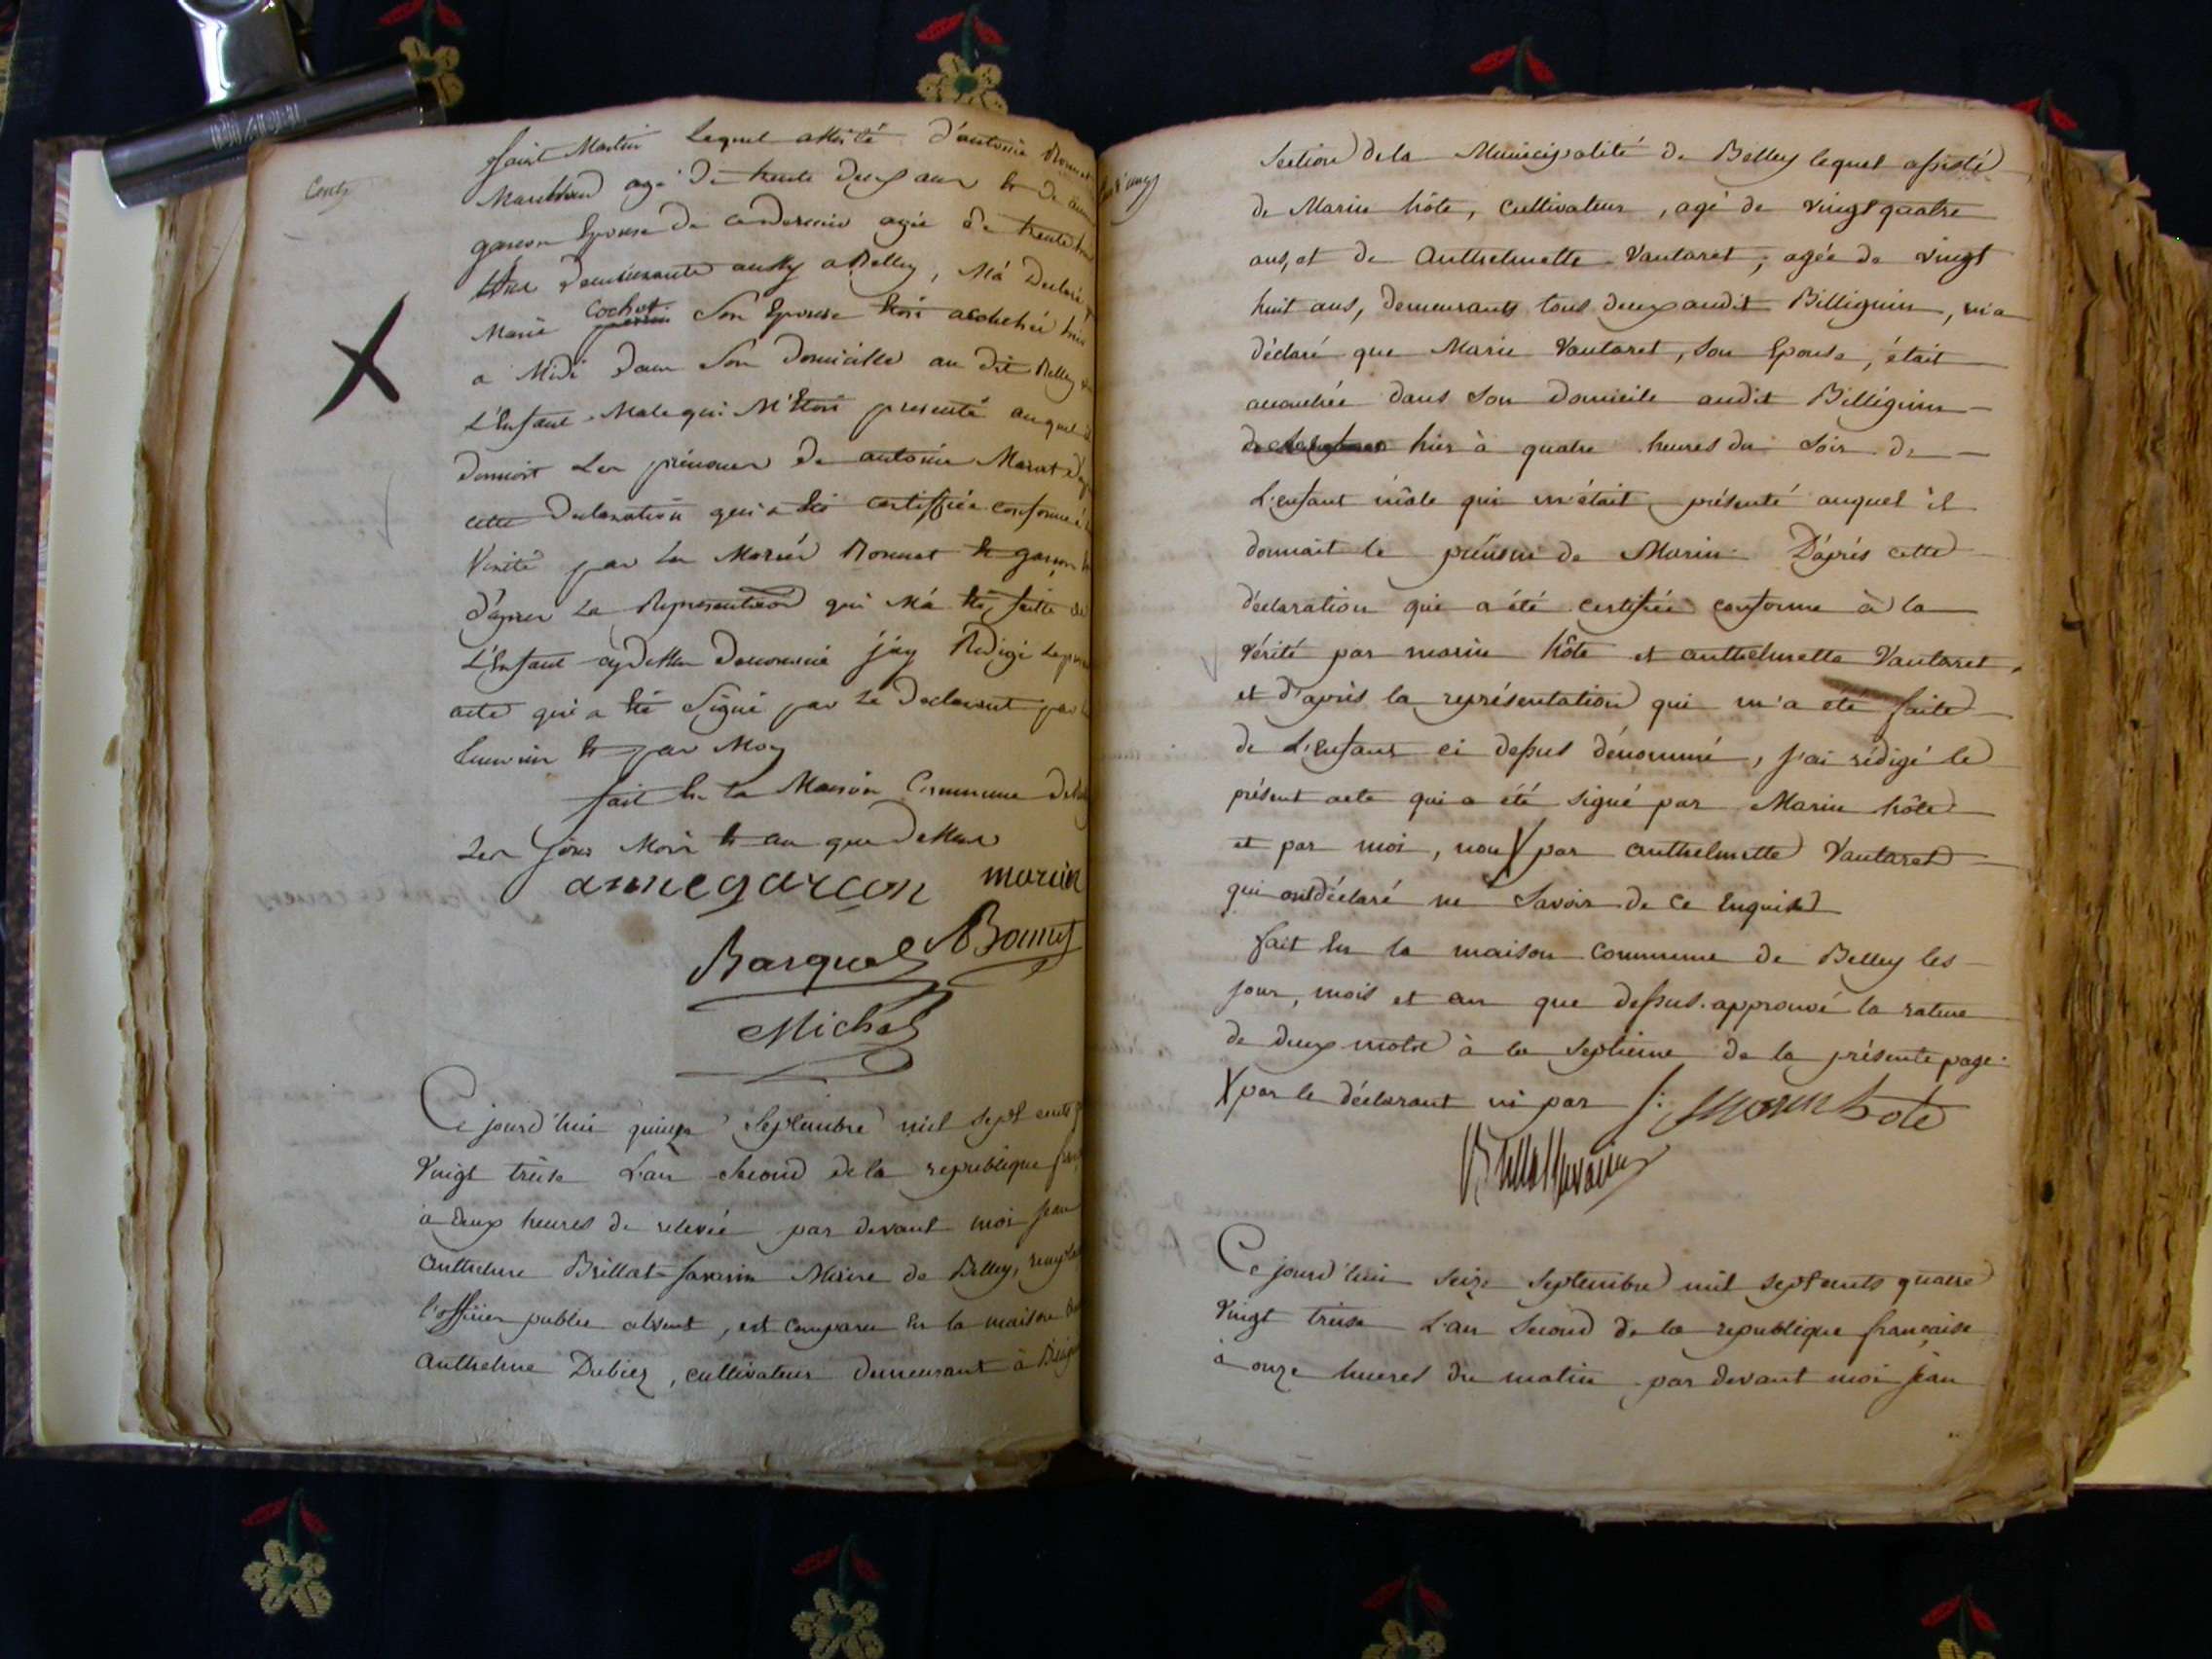 Saint Martin Lequel assisté d'antoine Bonnet
Marchand agé de trente deux ans & de anne
garcon Epouse de ce dernier agée de trente
demeurante aussy a Belley, M'a Declaré
Marie Cochet Son Epouse Etoit accouchée hier
a Midi dans Son Domicille au dit Belley
L'Enfant Male qui M'Etoit presenté auquel il
donnoit Les prénoms de antoine Marat d'après
cette Declaration qui a Eté certiffiée conforme à
Verité par Les Mariés Bonnet & garcon &
d'après La Representation qui M'a Eté faitte de
L'Enfant cy dessus denommé j'ay Redigé Le
acte qui a Eté Signé par Le Declarant par
temoins & par Moy
fait En la Maison Commune de
Les Jour Mois & an que dessus
anne garcon
Bonnet
Michel
Ce jourd'hui quinze Septembre mil sept cents
Vingt treise L'an Second de la republique
à deux heures de relevée par devant moi Jean
Anthelme Brillat Savarin Maire de Belley,
l'officier public absent, est comparu En la maison
Anthelme Dubiez, cultivateur demeurant à
Section de la Municipalité de Belley lequel assisté
de Marin hôte, Cultivateur, agé de vingt quatre
ans, et de Anthelmette Vautaret, agée de vingt
huit ans, demeurants tous deux audit Billignin, m'a
déclaré que Marie Vautaret, Son Epouse, était
accouchée dans Son Domicile audit Billignin
hier à quatre heures du Soir de
L'enfant mâle qui m'était présenté auquel il
donnait le prénom de Marin. D'après cette
déclaration qui a été certifiée conforme à la
Vérité par marin hôte et anthelmette Vautaret,
et d'après la représentation qui m'a été faite
de L'Enfant ci dessus dénommé, j'ai rédigé le
présent acte qui a été signé par Marin hôte
et par moi, non X par Anthelmette Vautaret
qui ont déclaré ne Savoir de ce Enquis
fait En la maison Commune de Belley les
jour, mois et an que dessus. approuvé la rature
de deux mots à la Septieme de la présente page.
X par le déclarant ni par
marin hote
Ce jourd'hui Seize Septembre mil sept cents quatre
Vingt treise L'an Second de la republique française
à onze heures du matin par devant moi Jean